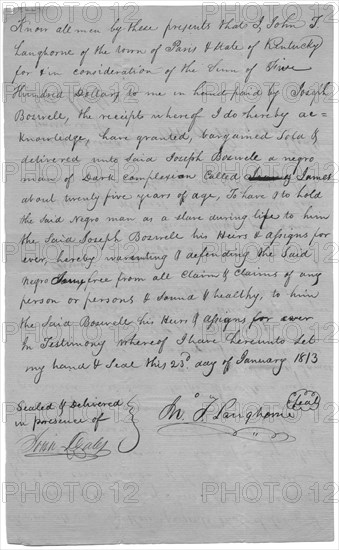 Know all men by these presents that I, John T
Langhorne of the town of Paris & State of Kentucky
for & in consideration of the Sum of Five
Hundred Dollars to me in hand paid by Joseph
Boswell, the receipts whereof I do hereby ac=
knowledge, have granted, bargained Sold &
delivered unto Said Joseph Boswell a negro
man of Dark complexion Called James
about twenty five years of age, To have & to hold
the Said Negro man as a slave during life to him
the Said Joseph Boswell his Heirs & assigns for
ever, hereby warranting & defending the Said
Negro free from all Claim & Claims of any
person or persons & Sound & healthy, to him
the Said Boswell his Heirs & Assigns for ever
In Testimony whereof I have hereunto Set
my hand & Seal this 23d day of January 1813
Sealed & Delivered
in presence of
Jno. T. Langhorne Seal
PHOTO 12